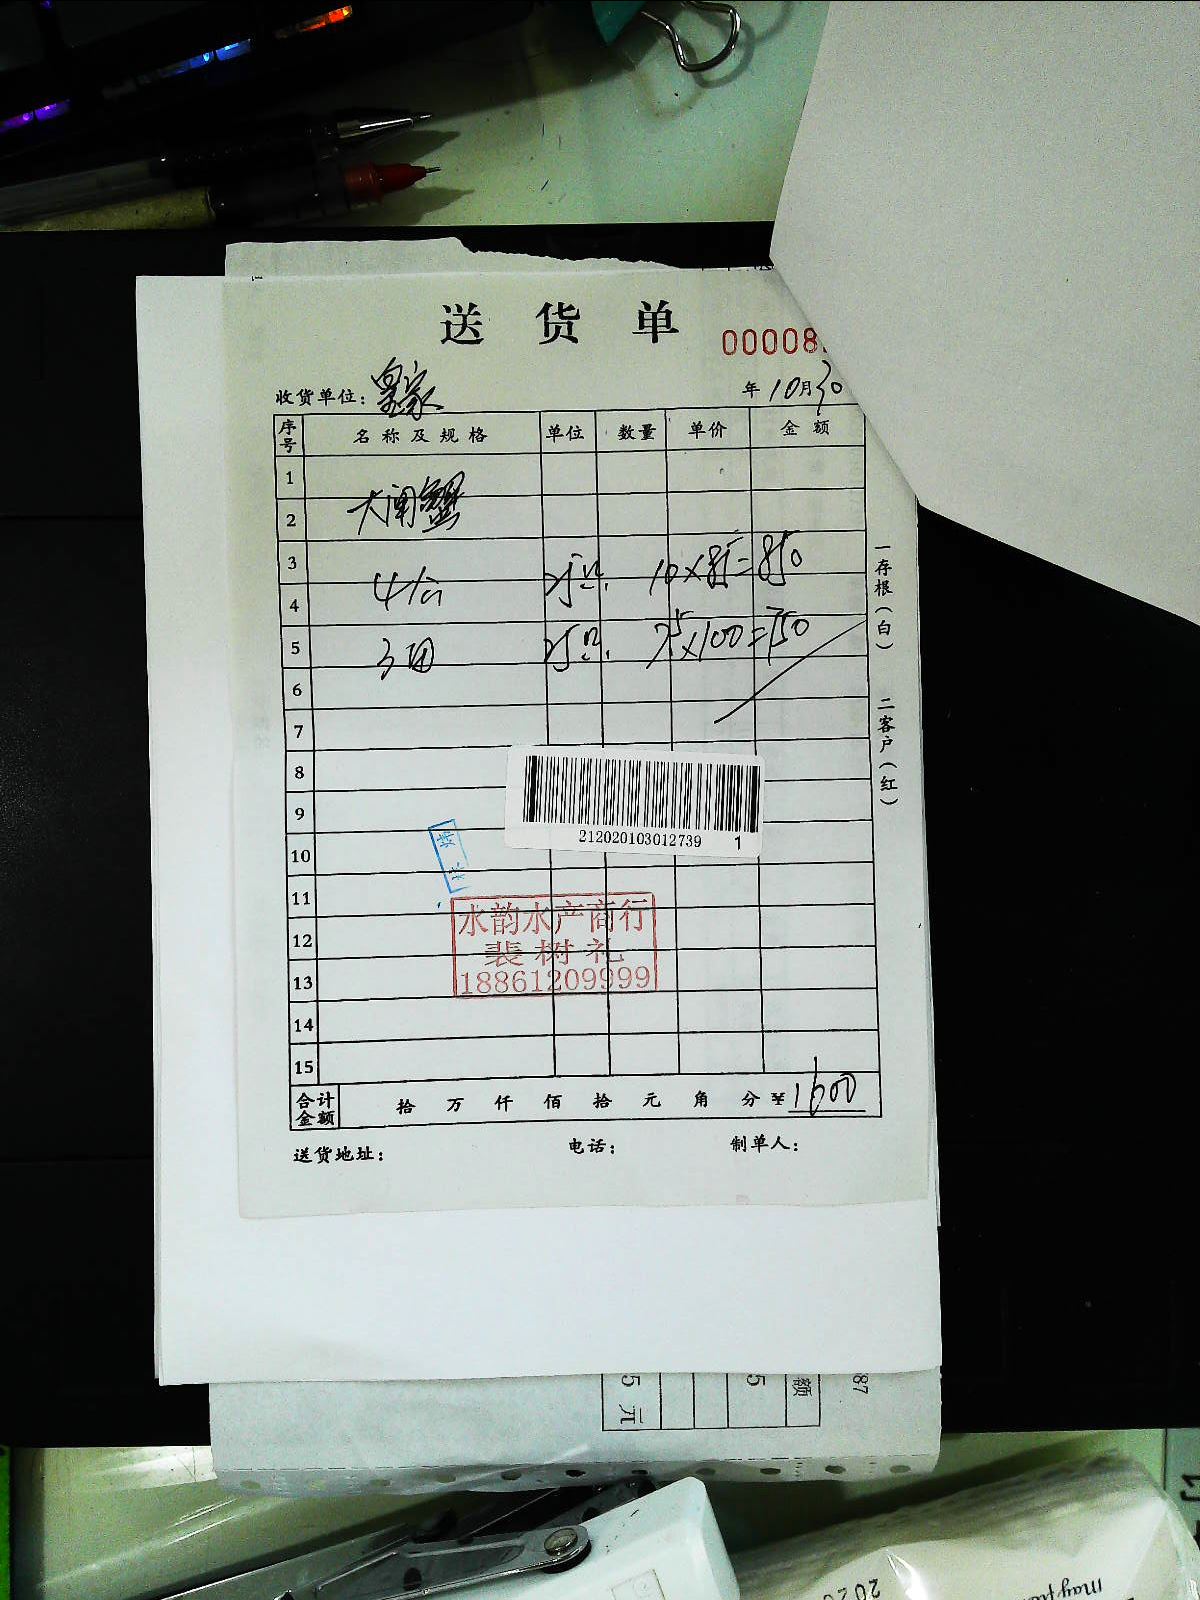 送货单
00008
收货单位: 皇家 年 10月30
序号 名称及规格 单位 数量 单价 金额
1
大闸蟹
2
3
4公 10×85=850
4
5
3母 7.5×100=750
6
7
8
9
212020103012739 1
10
11
水韵水产商行
12
裴树礼
13
18861209999
14
15
合计金额 拾 万 仟 佰 拾 元 角 分 ¥1600
送货地址: 电话: 制单人:
一存根(白) 二客户(红)
5 元 5 额 87
2020 may